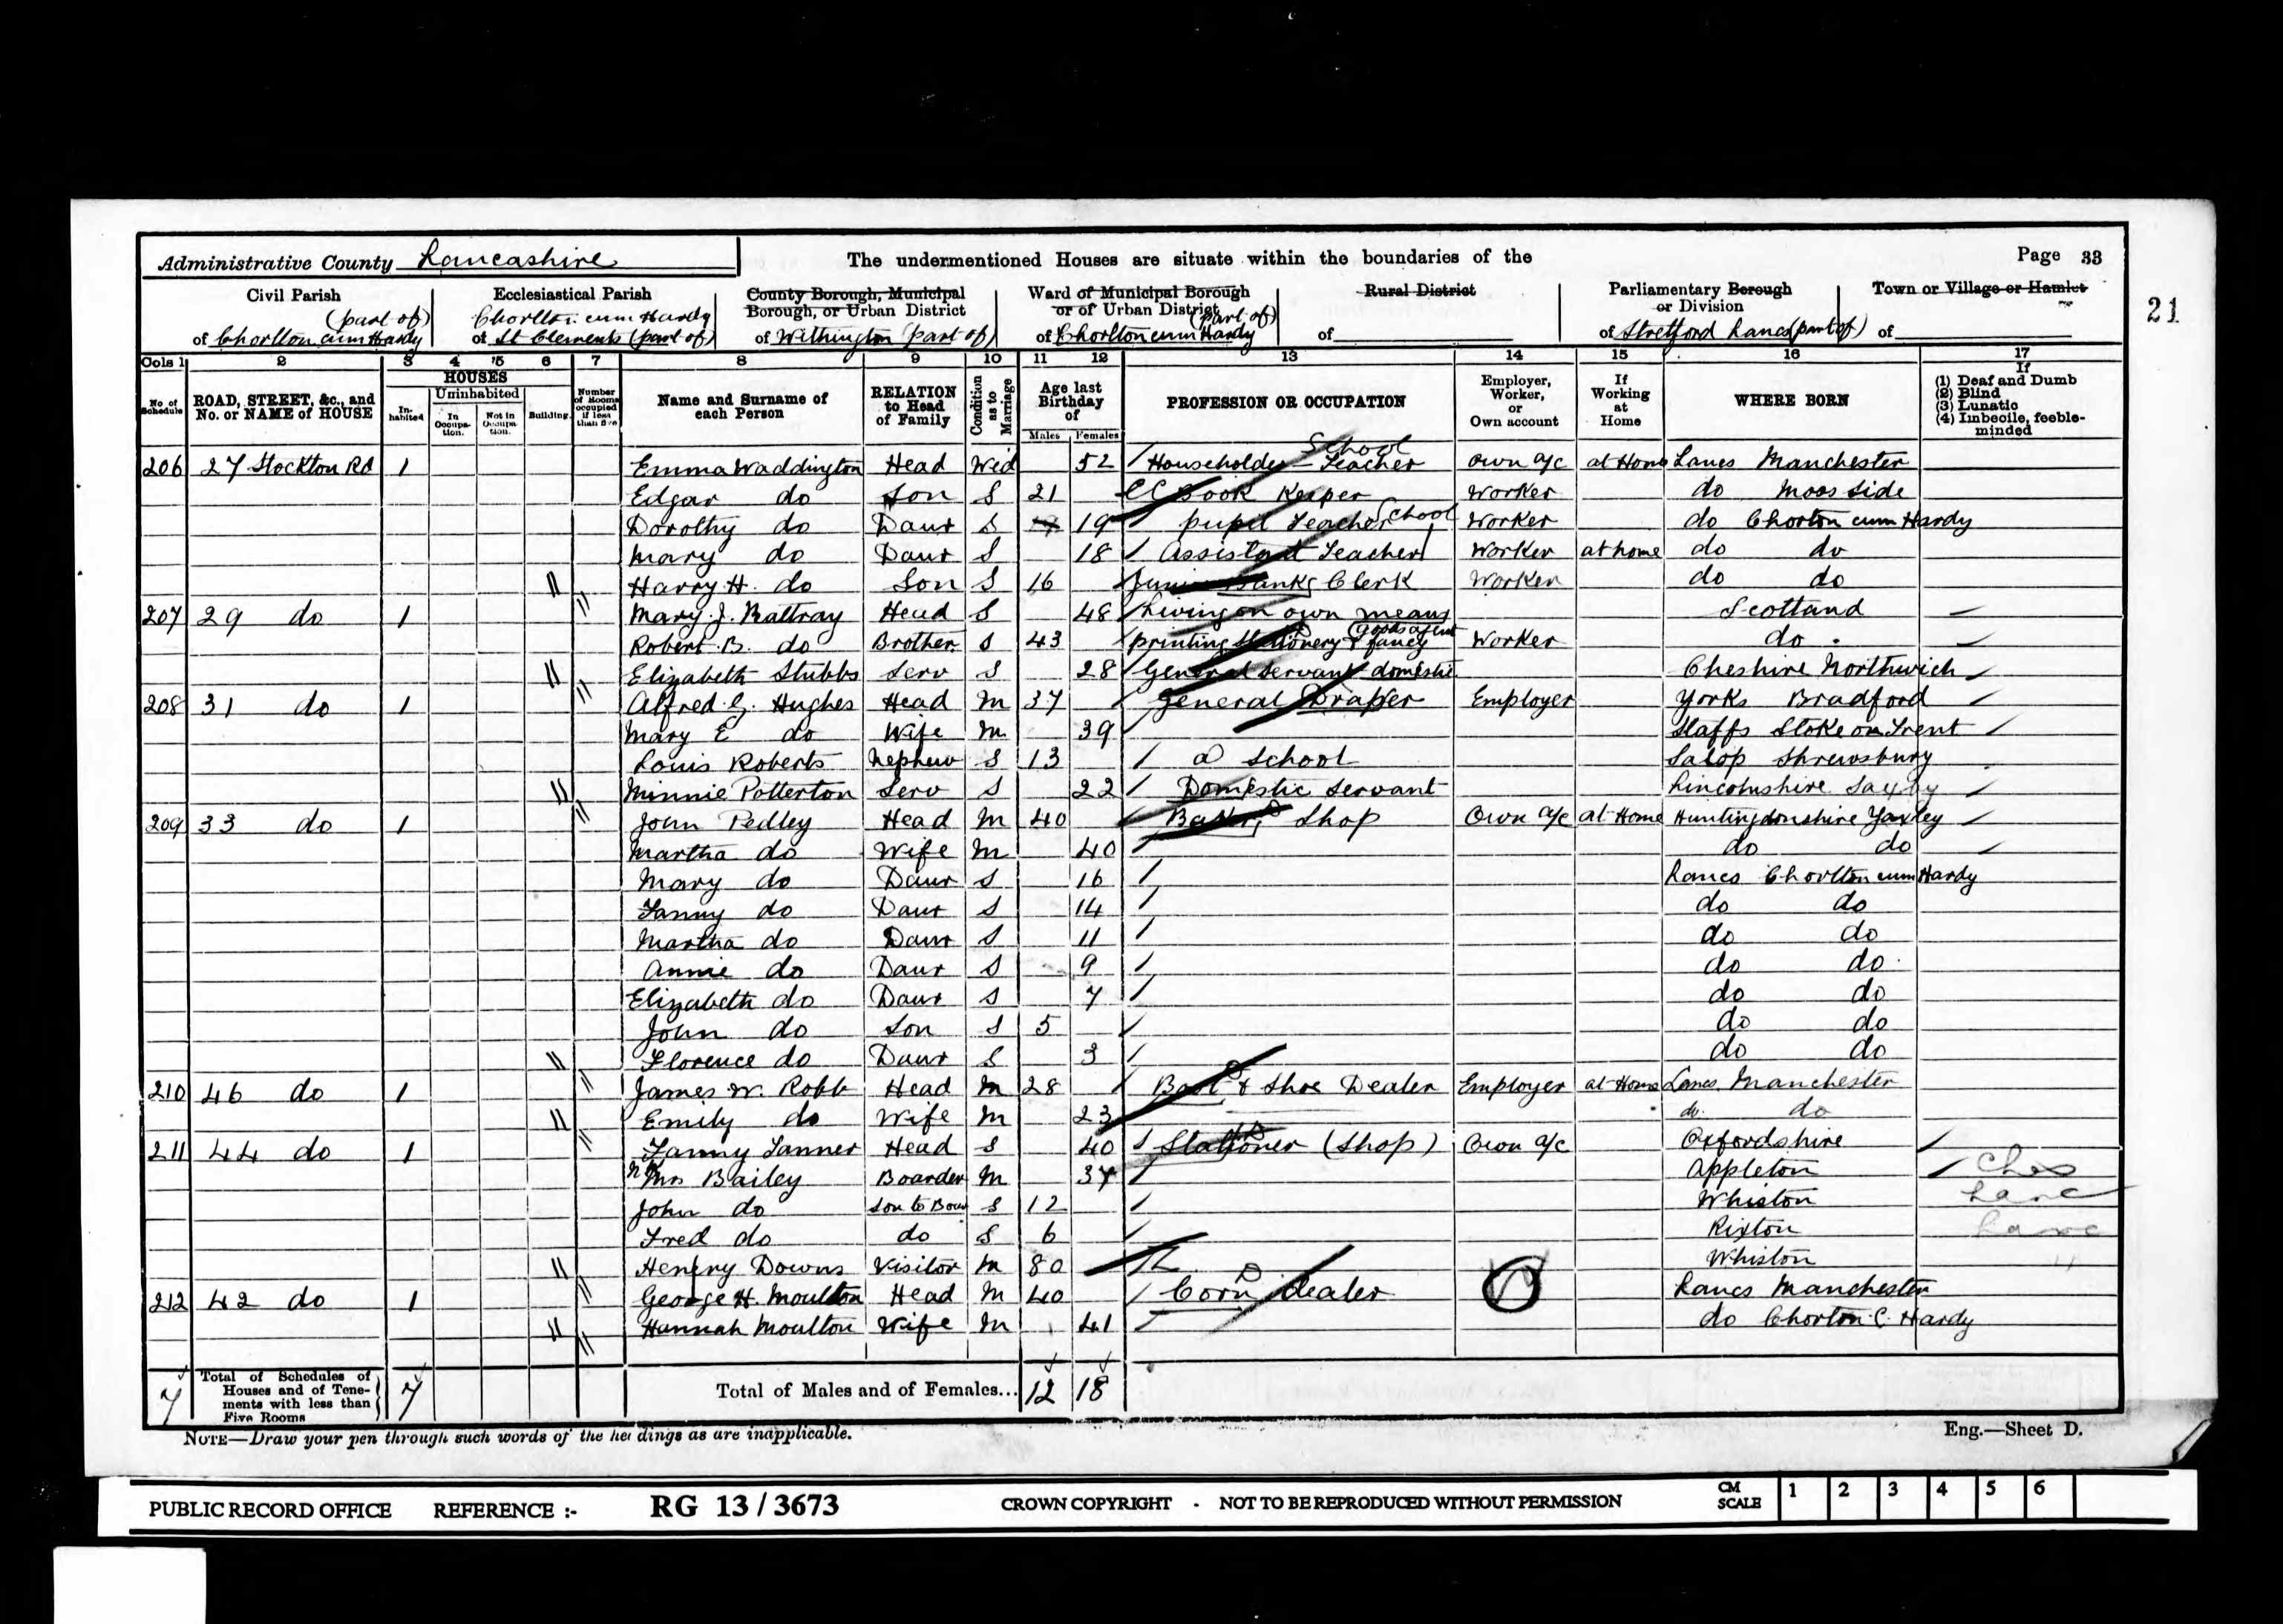 Administrative County Lancashire
The undermentioned Houses are situate within the boundaries of the
Page 33
21
Civil Parish (part of) of Chorlton cum Hardy
Ecclesiastical Parish Chorlton cum Hardy of St Clements (part of)
County Borough, Municipal Borough, or Urban District of Withington (part of)
Ward of Municipal Borough or of Urban District (part of) of Chorlton cum Hardy
Rural District of
Parliamentary Borough or Division of Stretford Lancs (part of)
Town or Village or Hamlet of
Cols 1 2 3 4 5 6 7 8 9 10 11 12 13 14 15 16 17
No. of Schedule
ROAD, STREET, &c., and No. or NAME of HOUSE
HOUSES
Inhabited
Uninhabited
In Occupation.
Not in Occupation.
Building.
Number of Rooms occupied if less than five
Name and Surname of each Person
RELATION to Head of Family
Condition as to Marriage
Age last Birthday of
Males Females
PROFESSION OR OCCUPATION
Employer, Worker, or Own account
If Working at Home
WHERE BORN
If (1) Deaf and Dumb (2) Blind (3) Lunatic (4) Imbecile, feeble-minded
206 27 Stockton Rd 1 Emma Waddington Head Wid 52 Householder - School Teacher Own a/c at Home Lancs Manchester
Edgar do Son S 21 Book Keeper Worker do Moss Side
Dorothy do Daur S 19 pupil Teacher School Worker do Chorton cum Hardy
Mary do Daur S 18 Assistant Teacher Worker at home do do
Harry H. do Son S 16 Junior Bank Clerk Worker do do
207 29 do 1 Mary J. Rattray Head S 48 Living on own means Scotland
Robert B. do Brother S 43 printing Stationery & fancy goods agent Worker do
Elizabeth Stubbs Serv S 28 General Servant domestic Cheshire Northwich
208 31 do 1 Alfred G. Hughes Head M 37 General Draper Employer Yorks Bradford
Mary E do Wife M 39 Staffs Stoke on Trent
Louis Roberts Nephew S 13 a School Salop Shrewsbury
Minnie Potterton Serv S 22 Domestic Servant Lincolnshire Saxby
209 33 do 1 John Pedley Head M 40 Baker, Shop Own a/c at Home Huntingdonshire Yaxley
Martha do Wife M 40 do do
Mary do Daur S 16 Lancs Chorlton cum Hardy
Fanny do Daur S 14 do do
Martha do Daur S 11 do do
Annie do Daur S 9 do do
Elizabeth do Daur S 7 do do
John do Son S 5 do do
Florence do Daur S 3 do do
210 46 do 1 James W. Robb Head M 28 Boot & Shoe Dealer Employer at Home Lancs Manchester
Emily do Wife M 23 do do
211 44 do 1 Fanny Tanner Head S 40 Stationer (Shop) Own a/c Oxfordshire
Mrs Bailey Boarder M 37 Appleton Ches
John do Son to Boar S 12 Whiston Lanc
Fred do do S 6 Rixton Lanc
Henry Downs Visitor M 80 Whiston "
212 42 do 1 George H. Moulton Head M 40 Corn Dealer Lancs Manchester
Hannah Moulton Wife M 41 do Chorton C. Hardy
7 Total of Schedules of Houses and of Tenements with less than Five Rooms 7
Total of Males and of Females... 12 18
NOTE—Draw your pen through such words of the headings as are inapplicable.
Eng.—Sheet D.
PUBLIC RECORD OFFICE REFERENCE :- RG 13 / 3673 CROWN COPYRIGHT - NOT TO BE REPRODUCED WITHOUT PERMISSION CM SCALE 1 2 3 4 5 6